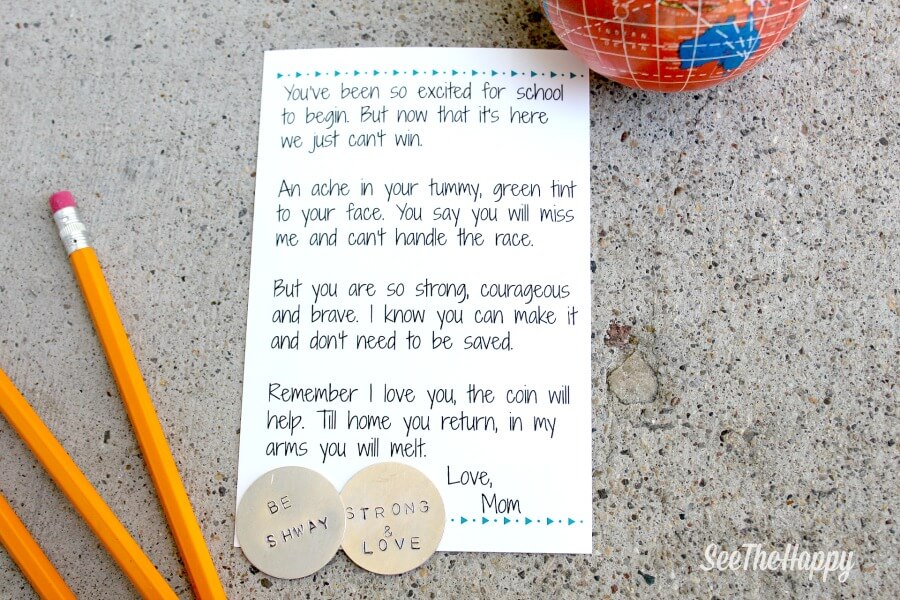 You've been so excited for school
to begin. But now that it's here
we just can't win.
An ache in your tummy, green tint
to your face. You say you will miss
me and can't handle the race.
But you are so strong, courageous
and brave. I know you can make it
and don't need to be saved.
Remember I love you, the coin will
help. Till home you return, in my
arms you will melt.
Love,
Mom
BE
SHWAY
STRONG
&
LOVE
SeeTheHappy